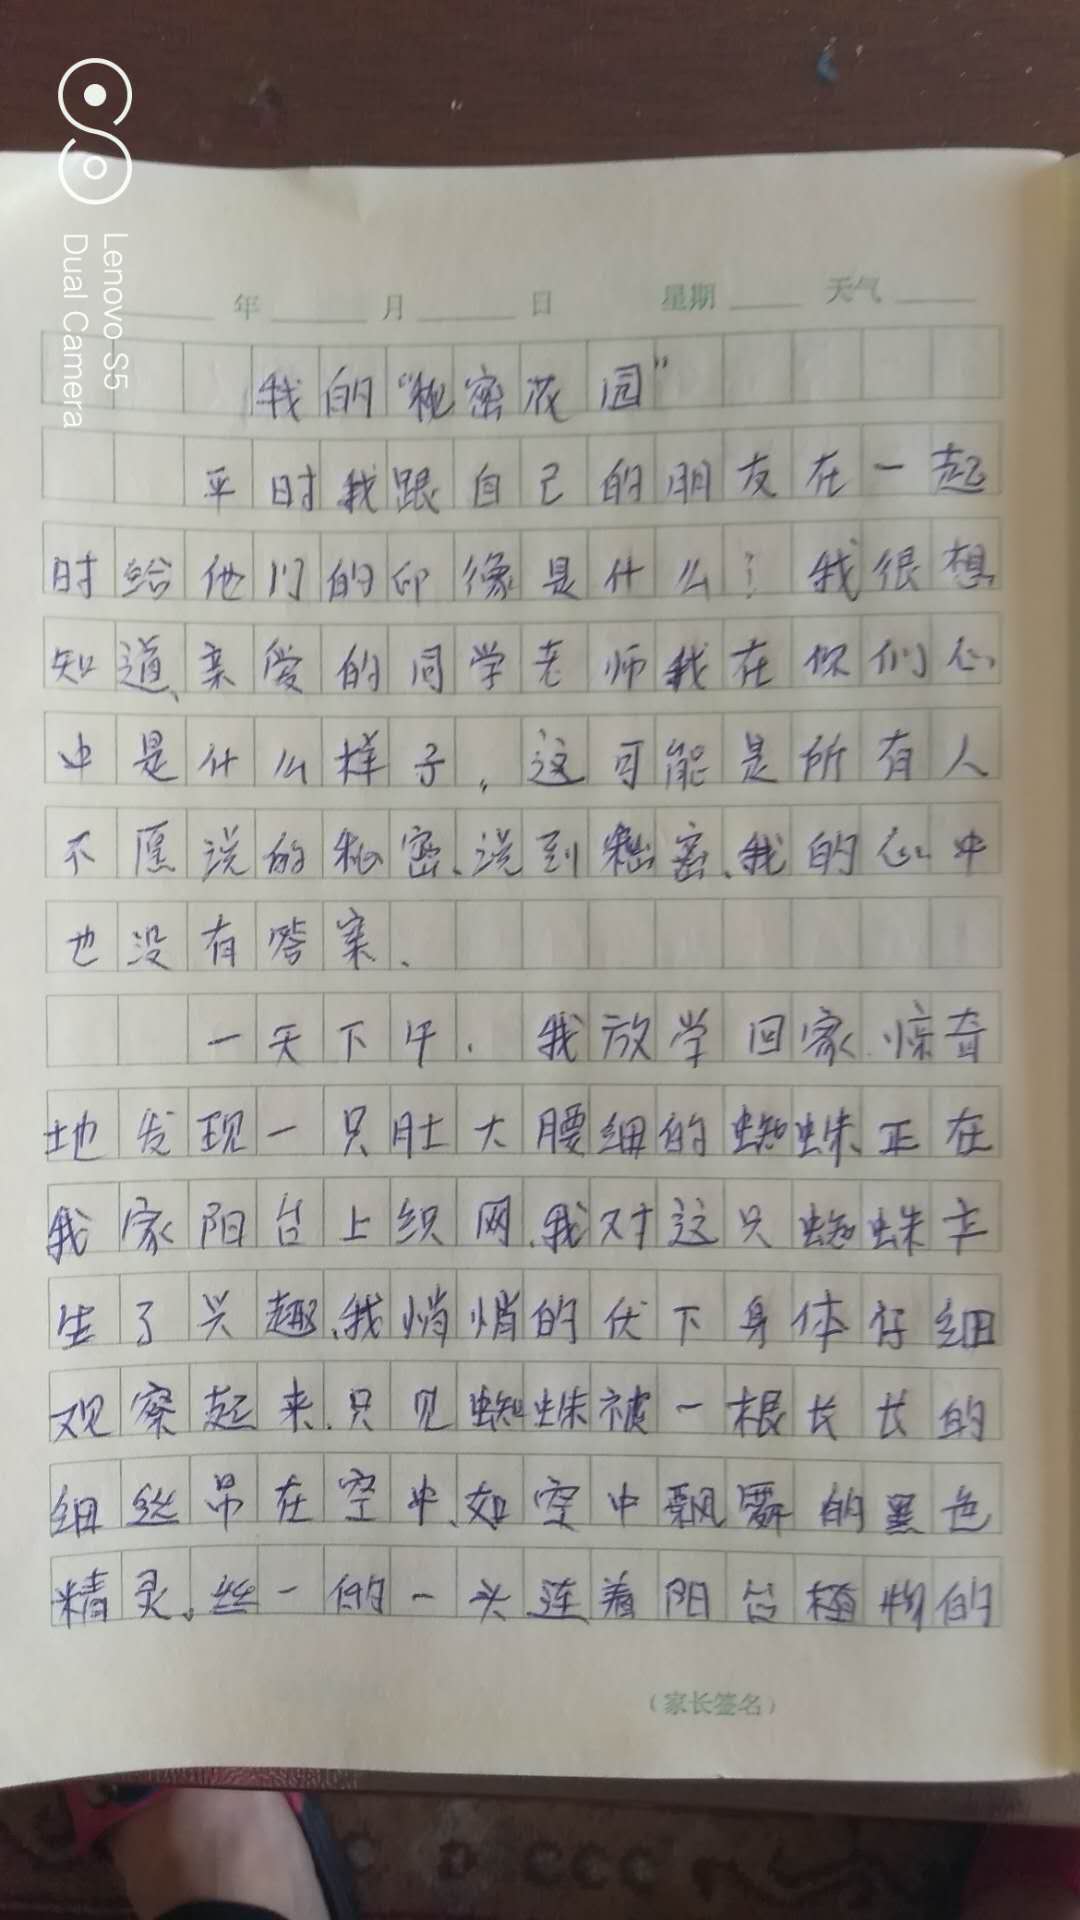 Lenovo S5
Dual Camera
年 月 日 星期 天气
我的“秘密花园”
平时我跟自己的朋友在一起
时给他们的印像是什么？我很想
知道、亲爱的同学老师我在你们心
中是什么样子，这可能是所有人
不愿说的秘密、说到秘密、我的心中
也没有答案、
一天下午，我放学回家.惊奇
地发现一只肚大腰细的蜘蛛、正在
我家阳台上织网、我对这只蜘蛛产
生了兴趣、我悄悄的伏下身体仔细
观察起来、只见蜘蛛被一根长长的
细丝吊在空中、如空中飘舞的黑色
精灵、丝一的一头连着阳台植物的
（家长签名）